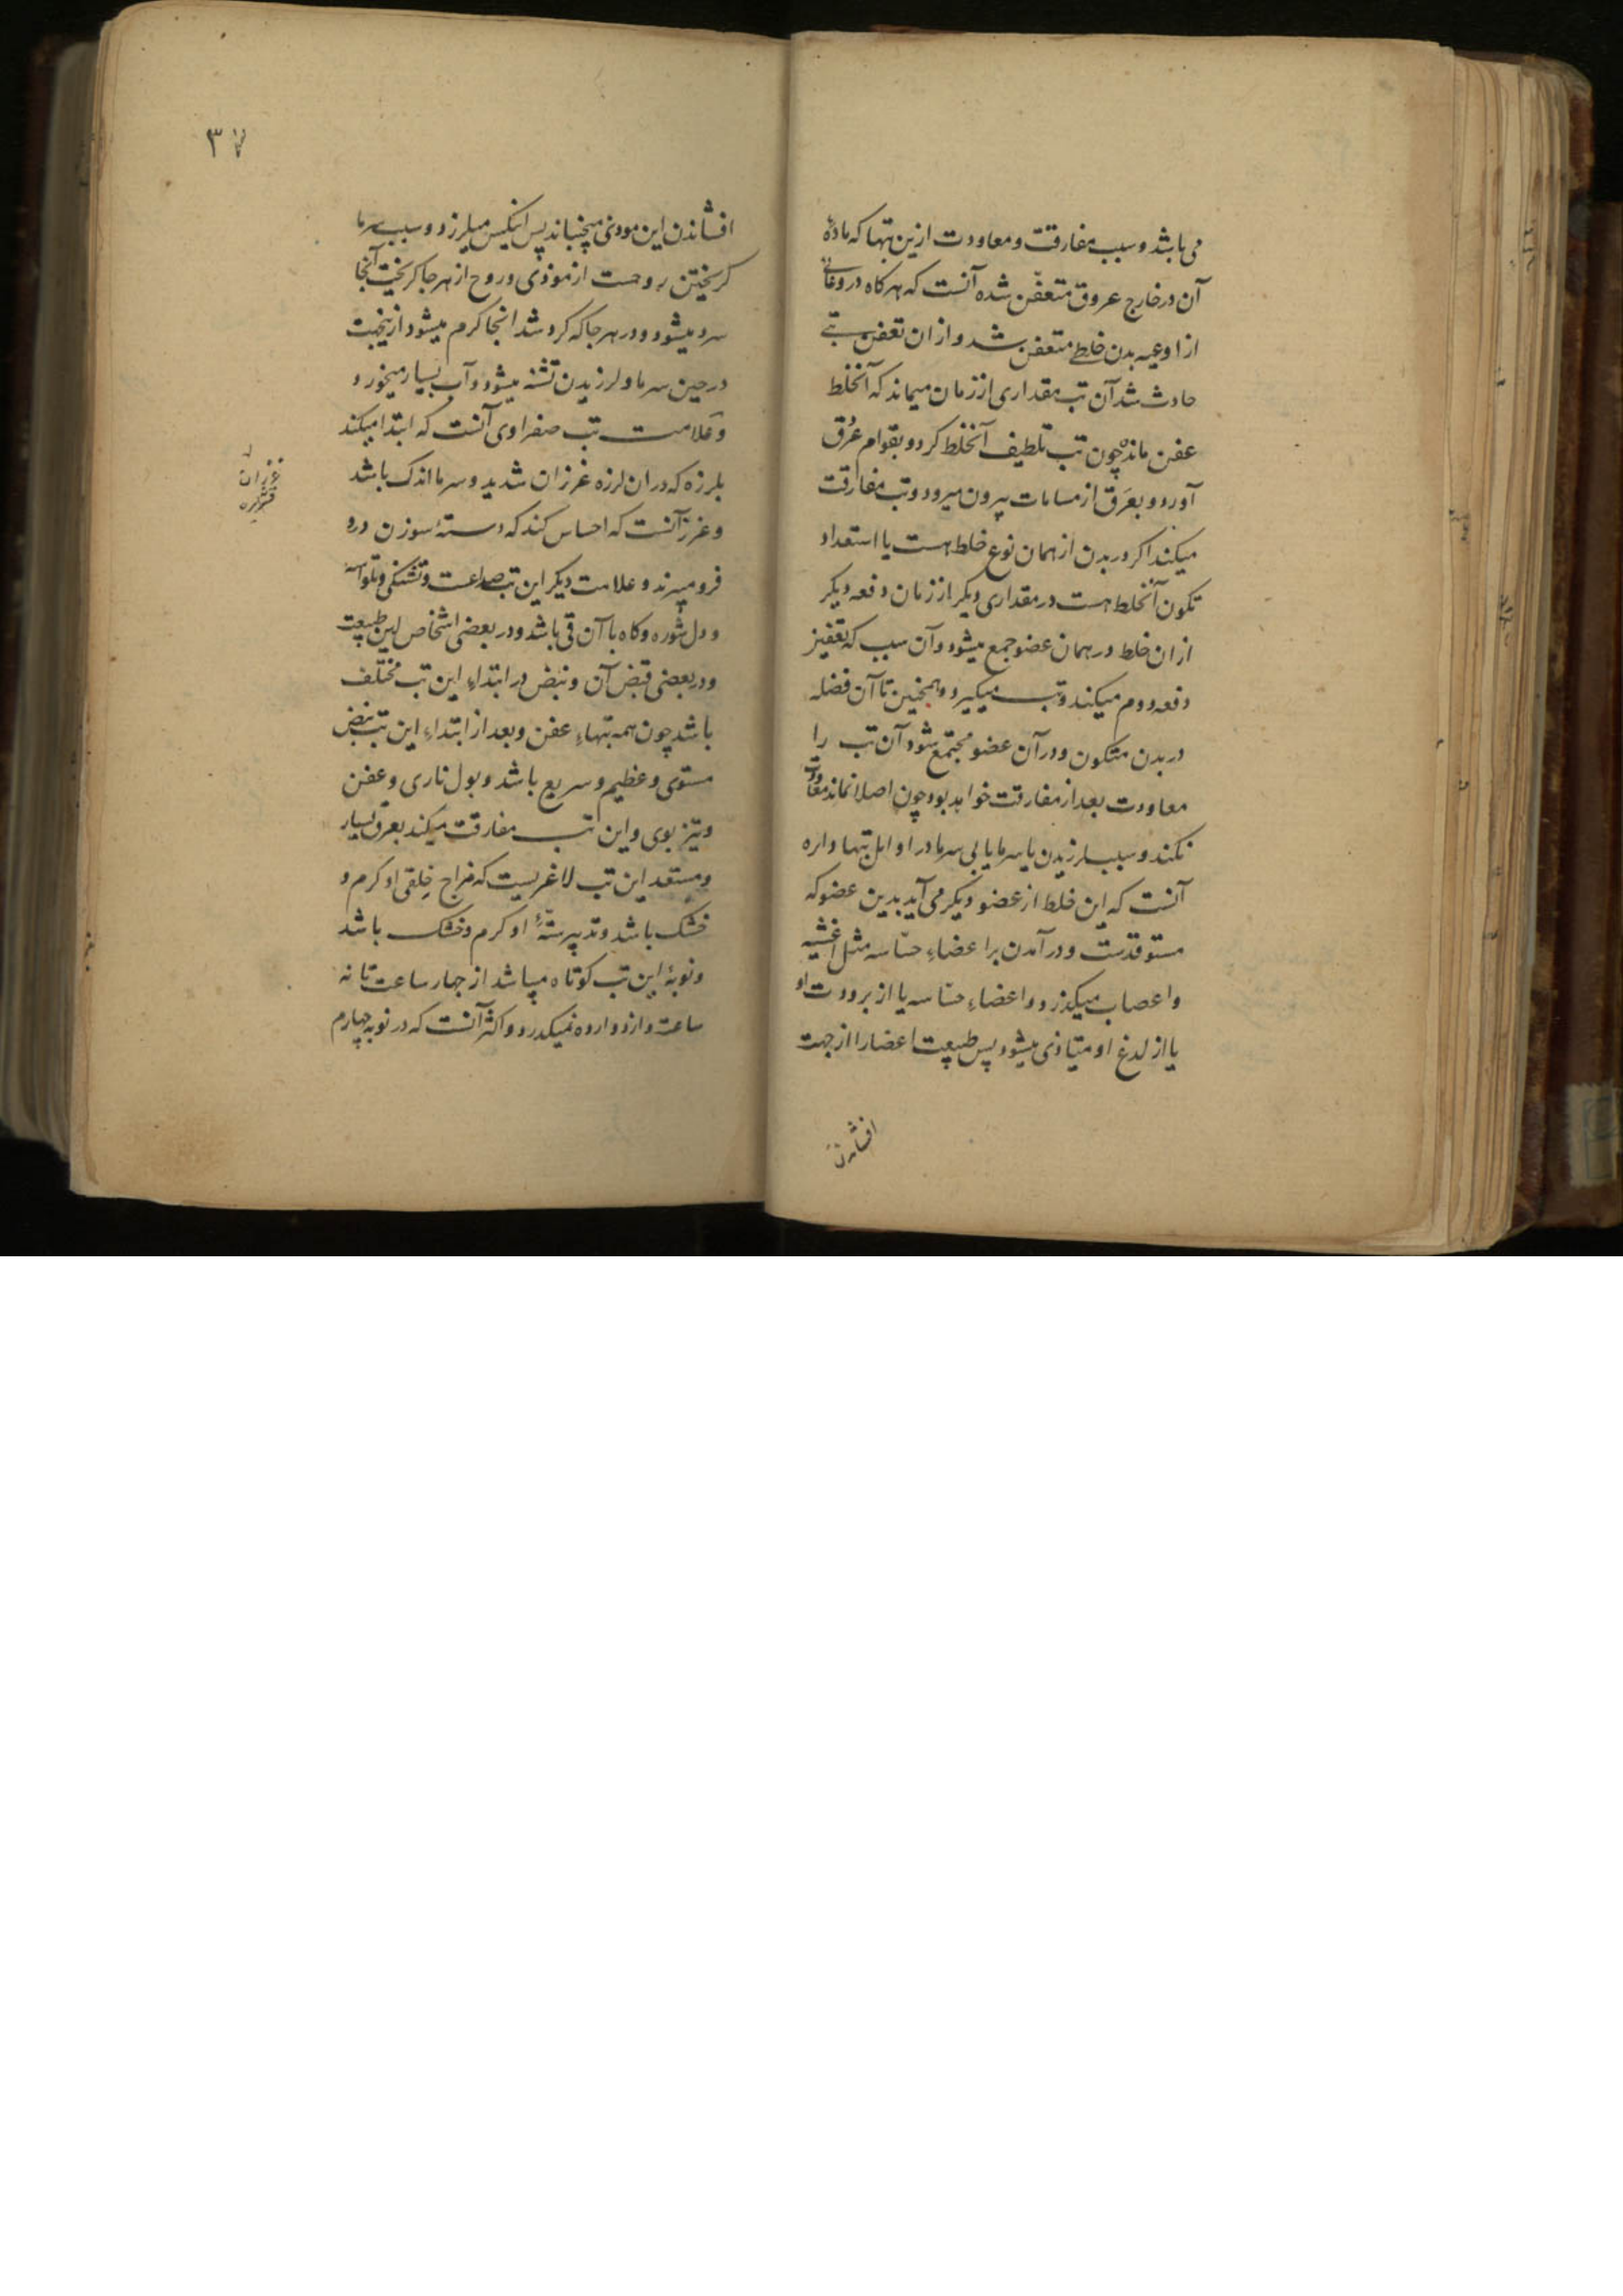 می باشد و سبب مفارقت و معاودت ازین تبها که مادهٔ
آن در خارج عروق متعفّن شده آنست که هرکاه در وعائی
از اوعیه بدن خلطی متعفن شد و از ان تعفن تبی
حادث شد آن تب مقداری از زمان میماند که آنخلط
عفن مانده چون تب تلطیف آنخلط کرد و بقوام عرق
آورد و بعَرَق از مسامات بیرون میرود و تب مفارقت
میکند اکر در بدن از همان نوع خلط هست یا استعداد
تکون آنخلط هست در مقداری دیکر از زمان دفعه دیکر
از ان خلط در همان عضو جمع میشود و آن سبب که تعفین
دفعه دوم میکند و تب میکیرد و همچنین تا آن فضله
در بدن متکون و در آن عضو مجتمع شود آن تب را
معاودت بعد از مفارقت خواهد بود چون اصلا نماند معاودت
نکند و سبب لرزیدن با سرما یا بی سرما در اوایل تبها دایره
آنست که این خلط از عضو دیکر می آید بدین عضو که
مستوقدست و در آمدن بر اعضاءِ حسّاسه مثل اغشیه
و اعصاب میکذرد و اعضاءِ حسّاسه یا از برودت او
یا از لدغ او متاذی میشود پس طبیعت اعضا را از جهت
افشاندن
۳۷
افشاندن این موذی میجنباند پس اینکس میلرزد و سبب سرما
کریختن روحست از موذی و روح از هرجا کریخت آنجا
سرد میشود و در هرجا که کرد شد انجا کرم میشود ازینجهت
در حین سرما و لرزیدن تشنه میشود و آب بسیار میخورد و
و علامت تب صفراوی آنست که ابتدا میکند
بلرزه که در ان لرزه غرزان شدید و سرما اندک باشد
و غرز آنست که احساس کند که دستهٔ سوزن درو
فرو میبرند و علامت دیکر این تب صداعست و تشنکی و تلواسه
و دل شوره و کاه با آن قی باشد و در بعضی اشخاص لین طبیعت
و در بعضی قبض آن و نبض در ابتداءِ این تب مختلف
باشد چون همه تبهاءِ عفن و بعد از ابتداءِ این تب نبض
مستوی و عظیم و سریع باشد و بول ناری و عفن
و تیز بوی و این تب مفارقت میکند بعرق بسیار
و مستعد این تب لاغریست که مزاج خلقی او کرم و
خشک باشد و تدبیر ستّهٔ او کرم و خشک باشد
و نوبهٔ این تب کوتاه میباشد از چهار ساعت تا نه
ساعت و از دوازده نمیکذرد و اکثر آنست که در نوبه چهارم
غرزان
قشعریره